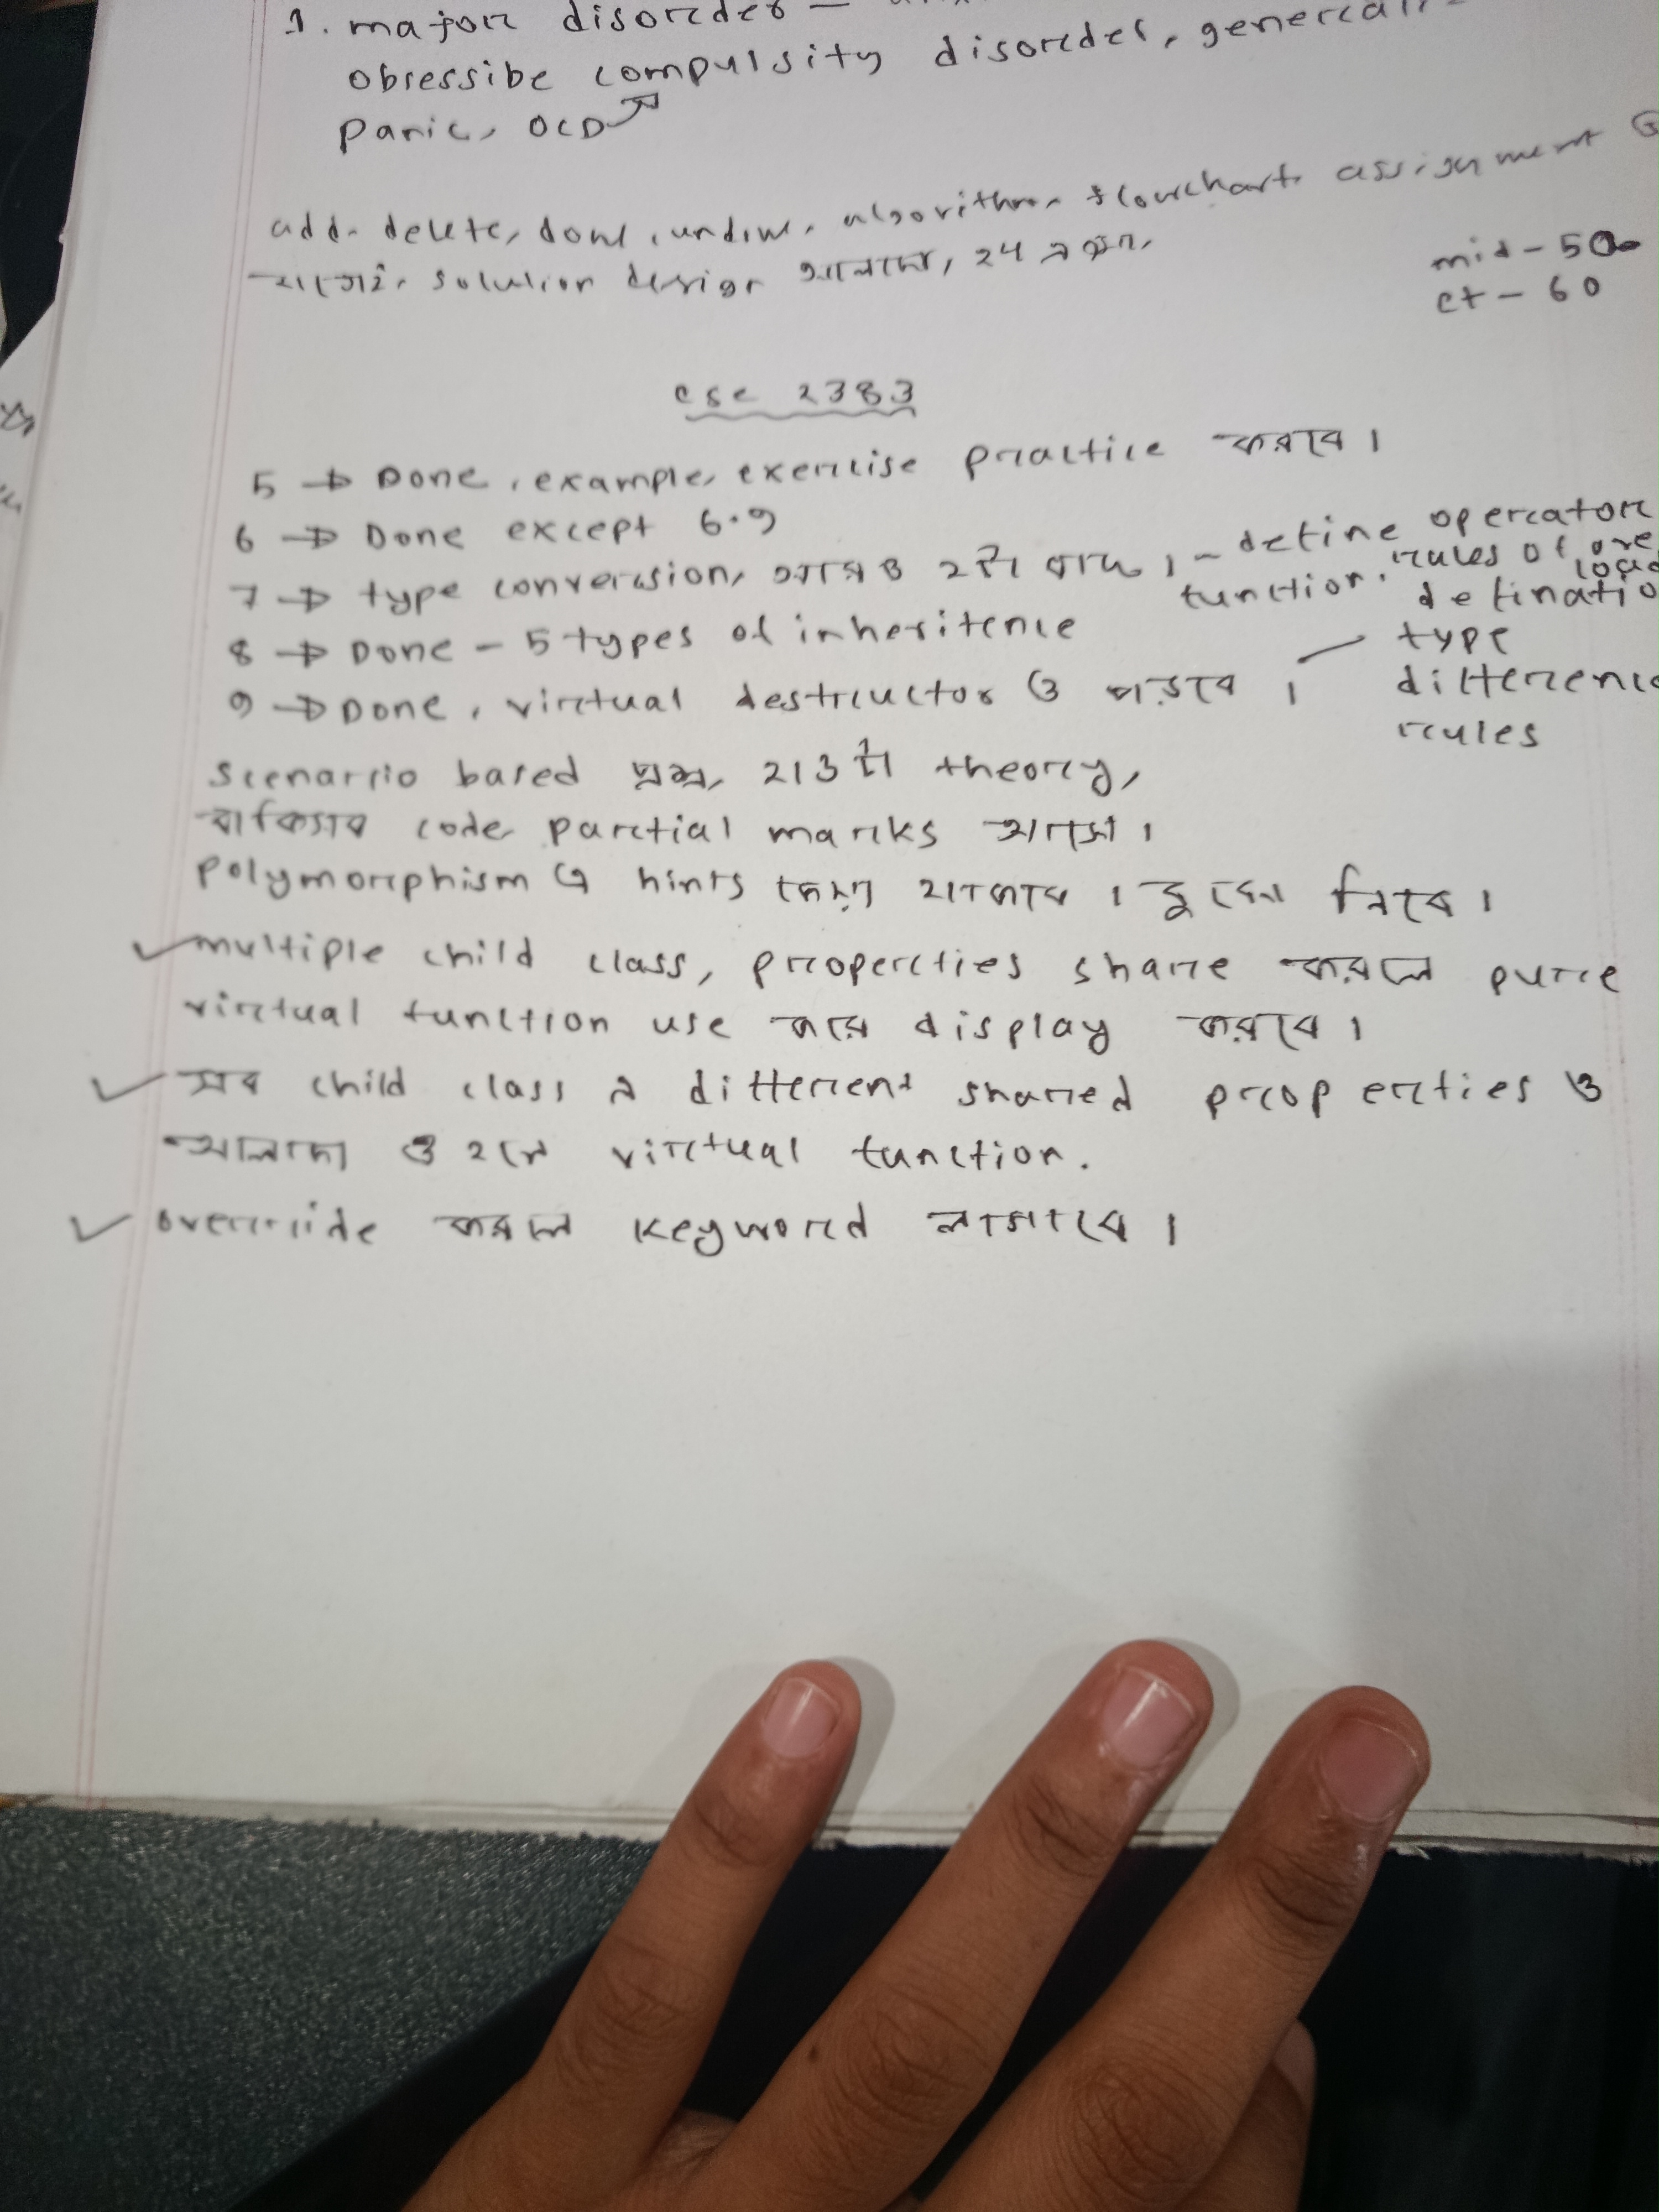 1. major disorder –
obsessibe compulsity disorder, generali
panic, OCD
add, delete, algorithm, flowchart assignment
solution design আলাদা, 24
mid - 50
ct - 60
cse 2383
5 → Done, example, exercise practice করবে।
6 → Done except 6.9
7 → type conversion, আরও ২টা বাদ। - define operator
function. rules of over
load
8 → Done - 5 types of inheritence
definatio
9 → Done, virtual destructor ও পড়বে।
type
difference
rules
scenario based প্রশ্ন, ২/৩ টা theory,
বাকিসব code partial marks আছে।
polymorphism এ hints দেয়া থাকবে। নিবে।
multiple child class, properties share করলে pure
virtual function use করে display করবে।
সব child class এ different shared properties ও
আলাদা ও হলে virtual function.
override করলে keyword লাগাবে।